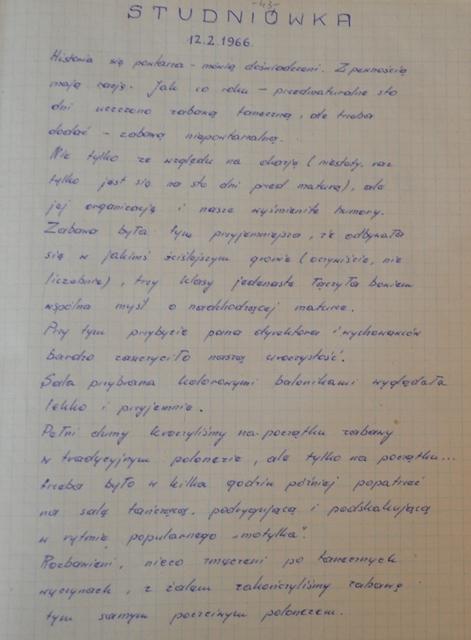 -43-
STUDNIÓWKA
12.2.1966.
Historia się powtarza - mówią doświadczeni. Z pewnością
mają rację. Jak co roku - przedmaturalne sto
dni uczczono zabawą taneczną, ale trzeba
dodać - zabawą niepowtarzalną.
Nie tylko ze względu na okazję (niestety, raz
tylko jest się na sto dni przed maturą), ale
jej organizację i nasze wyśmienite humory.
Zabawa była tym przyjemniejsza, że odbywała
się w jakimś ściślejszym gronie (oczywiście, nie
liczebnie), trzy klasy jedenaste łączyła bowiem
wspólna myśl o nadchodzącej maturze.
Przy tym przybycie pana dyrektora i wychowawców
bardzo zaszczyciło naszą uroczystość.
Sala przybrana kolorowymi balonikami wyglądała
lekko i przyjemnie.
Pełni dumy kroczyliśmy na początku zabawy
w tradycyjnym polonezie, ale tylko na początku...
trzeba było w kilka godzin później popatrzeć
na salę tańczącą, podrygującą i podskakującą
w rytmie popularnego „motylka".
Rozbawieni, nieco zmęczeni po tanecznych
wyczynach, z żalem zakończyliśmy zabawę
tym samym poczciwym polonezem.